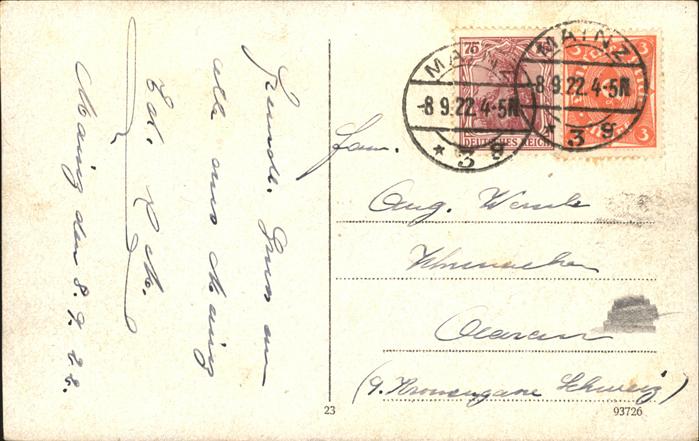 Freundl. Gruss an
alle aus Mainz
Ed.
Mainz den 8.9.22.
75
DEUTSCHES REICH
3
3
3
MAINZ
-8 9.22. 4-5N
* 3 g
MAINZ
-8 9.22. 4-5N
* 3 g
Fam.
Aug.
Aarau
(g. Kronengasse Schweiz)
23
93726